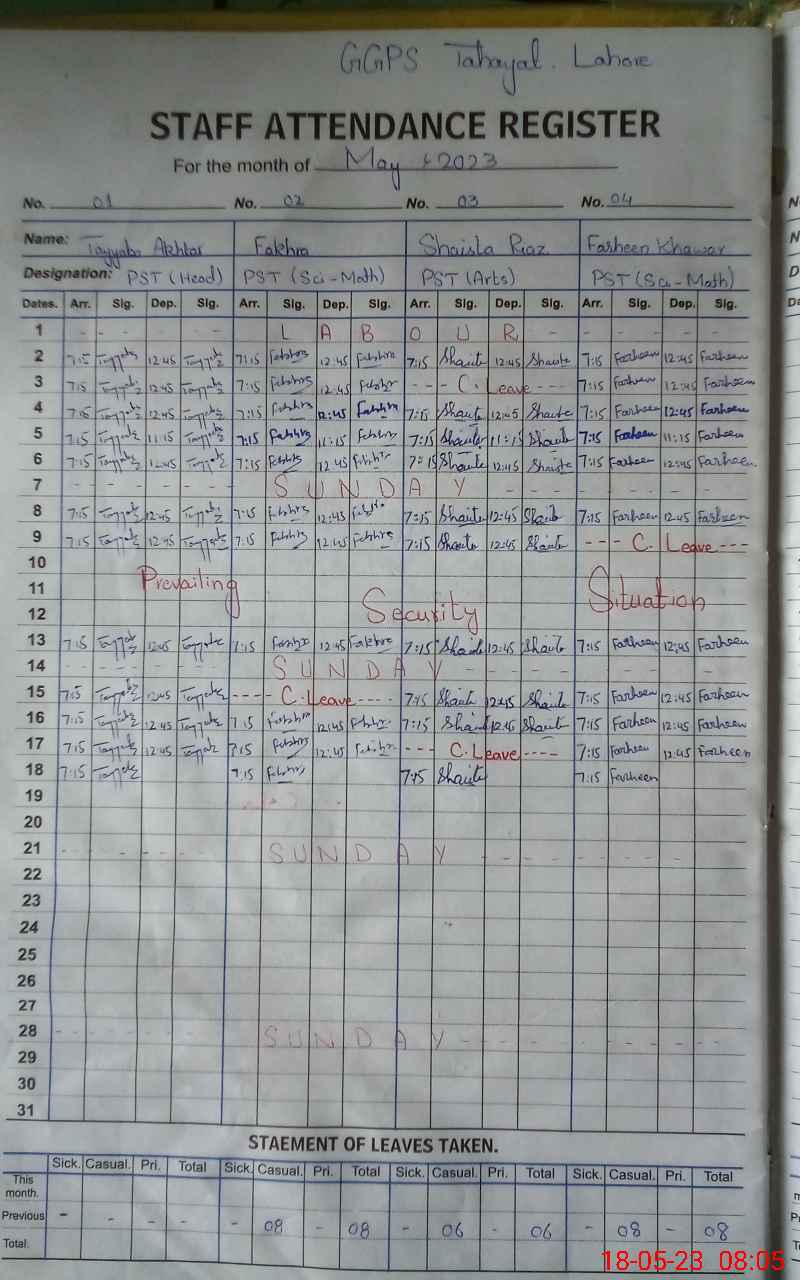 GGPS Tahayal. Lahore
STAFF ATTENDANCE REGISTER
For the month of May 2023
No. 01 No. 02 No. 03 No. 04
Name: Tayyaba Akhtar Fakhra Shaista Riaz Farheen Khawar
Designation: PST (Head) PST (Sci-Math) PST (Arts) PST (Sci-Math)
Dates. Arr. Sig. Dep. Sig. Arr. Sig. Dep. Sig. Arr. Sig. Dep. Sig. Arr. Sig. Dep. Sig.
1 - - - - L A B O U R - - - - -
2 7:15 12:45 7:15 12:45 7:15 Shaista 12:45 Shaista 7:15 Farheen 12:45 Farheen
3 7:15 12:45 7:15 12:45 --- C. Leave --- 7:15 Farheen 12:45 Farheen
4 7:15 12:45 7:15 12:45 7:15 Shaista 12:45 Shaista 7:15 Farheen 12:45 Farheen
5 7:15 11:15 7:15 11:15 7:15 Shaista 11:15 Shaista 7:15 Farheen 11:15 Farheen
6 7:15 12:45 7:15 12:45 7:15 Shaista 12:45 Shaista 7:15 Farheen 12:45 Farheen
7 - - - - S U N D A Y - - - - -
8 7:15 12:45 7:15 12:45 7:15 Shaista 12:45 Shaista 7:15 Farheen 12:45 Farheen
9 7:15 12:45 7:15 12:45 7:15 Shaista 12:45 Shaista --- C. Leave ---
10
11 Prevailing Situation
12 Security
13 7:15 12:45 7:15 12:45 Fakhra 7:15 Shaista 12:45 Shaista 7:15 Farheen 12:45 Farheen
14 - - - - S U N D A Y - - - - -
15 7:15 12:45 ---- C. Leave ---- 7:15 Shaista 12:45 Shaista 7:15 Farheen 12:45 Farheen
16 7:15 12:45 7:15 12:45 7:15 Shaista 12:45 Shaista 7:15 Farheen 12:45 Farheen
17 7:15 12:45 7:15 12:45 --- C. Leave ---- 7:15 Farheen 12:45 Farheen
18 7:15 7:15 7:15 Shaista 7:15 Farheen
19
20
21 - - - - - S U N D A Y - - - - - -
22
23
24
25
26
27
28 - - - - - S U N D A Y - - - - - -
29
30
31
STAEMENT OF LEAVES TAKEN.
Sick. Casual. Pri. Total Sick. Casual. Pri. Total Sick. Casual. Pri. Total Sick. Casual. Pri. Total
This month.
Previous - - - - - 08 - 08 - 06 - 06 - 08 - 08
Total.
18-05-23 08:05